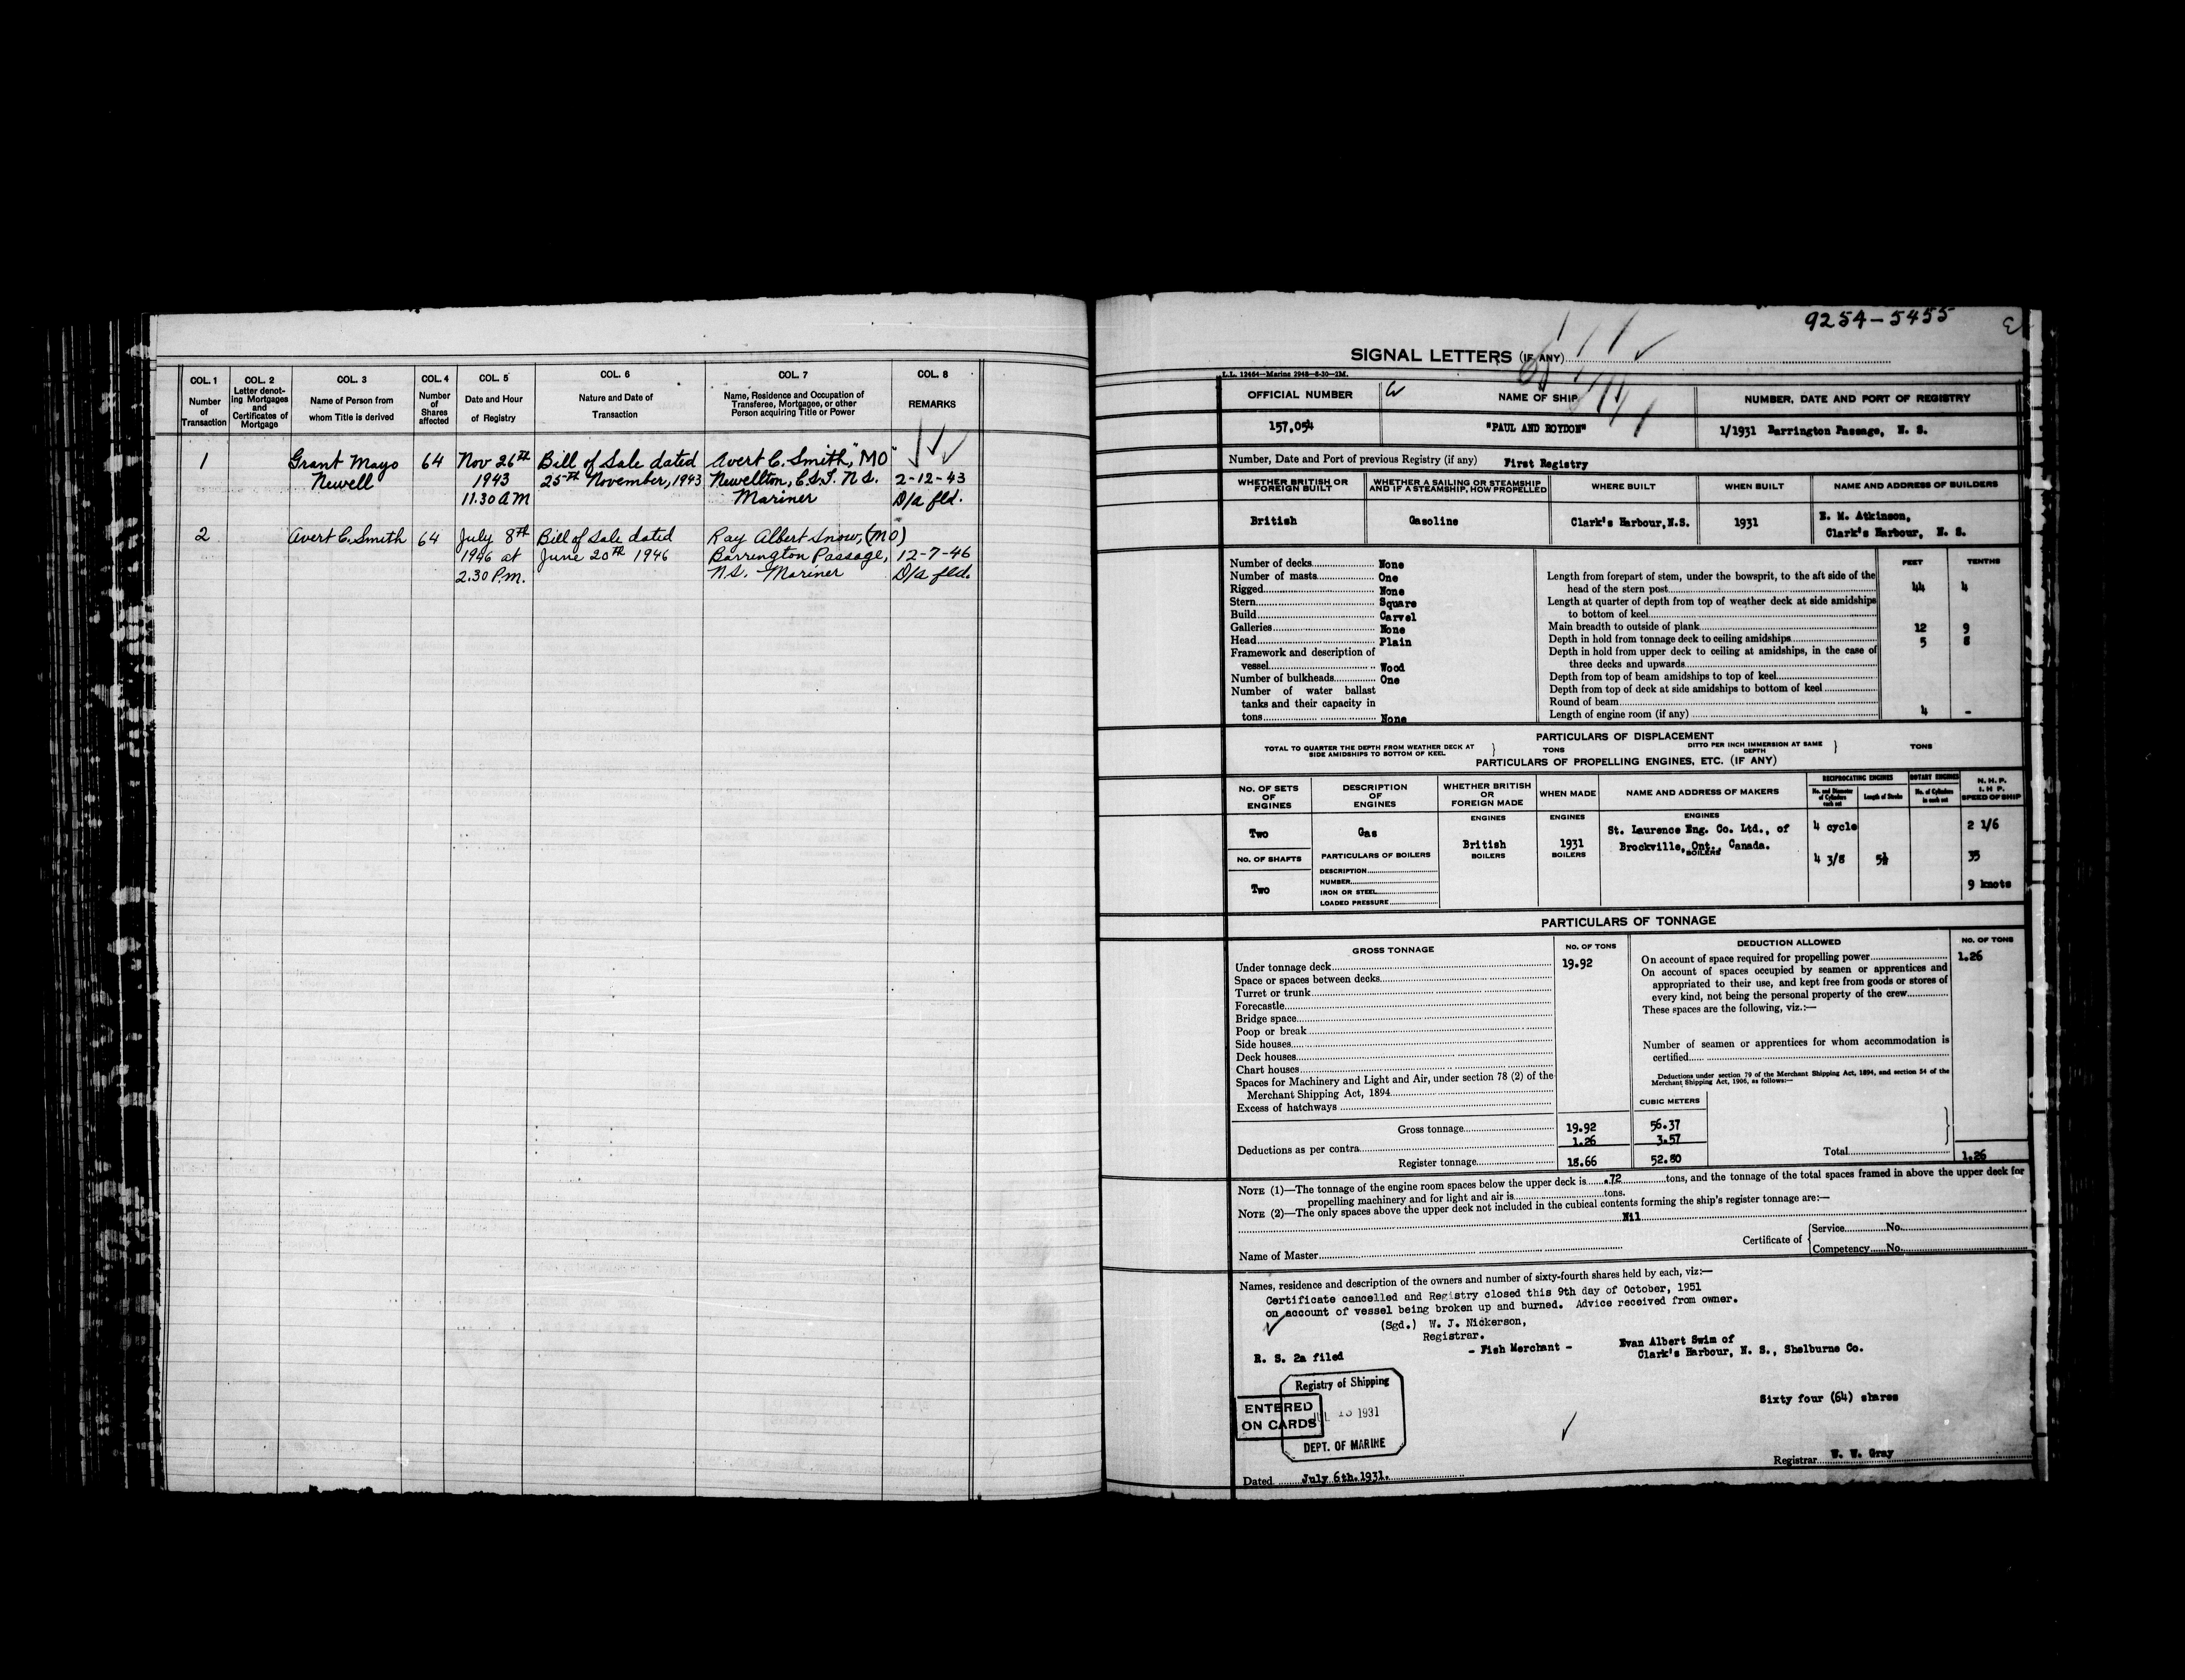 COL. 1
Number
of
Transaction
COL. 2
Letter denot-
ing Mortgages
and
Certificates of
Mortgage
COL. 3
Name of Person from
whom Title is derived
COL. 4
Number
of
Shares
affected
COL. 5
Date and Hour
of Registry
COL. 6
Nature and Date of
Transaction
COL. 7
Name, Residence and Occupation of
Transferee, Mortgagee, or other
Person acquiring Title or Power
COL. 8
REMARKS
1 Grant Mayo 64 Nov 26th Bill of Sale dated Avert C. Smith, "MO"
Newell 1943 25th November, 1943 Newellton, C.S.I. N.S. 2-12-43
11.30 AM Mariner D/a fld.
2 Avert C. Smith 64 July 8th Bill of Sale dated Ray Albert Snow, (MO)
1946 at June 20th 1946 Barrington Passage, 12-7-46
2.30 P.m. N.S. Mariner D/a fld.
9254-5455
SIGNAL LETTERS (IF ANY)
L.L. 12464—Marine 2948—6-30—2M.
OFFICIAL NUMBER NAME OF SHIP NUMBER, DATE AND PORT OF REGISTRY
157,054 "PAUL AND ROYDON" 1/1931 Barrington Passage, N. S.
Number, Date and Port of previous Registry (if any) First Registry
WHETHER BRITISH OR
FOREIGN BUILT
WHETHER A SAILING OR STEAMSHIP
AND IF A STEAMSHIP, HOW PROPELLED
WHERE BUILT
WHEN BUILT
NAME AND ADDRESS OF BUILDERS
British Gasoline Clark's Harbour, N.S. 1931 E. M. Atkinson,
Clark's Harbour, N. S.
Number of decks None
Number of masts One
Rigged None
Stern Square
Build Carvel
Galleries None
Head Plain
Framework and description of
vessel Wood
Number of bulkheads One
Number of water ballast
tanks and their capacity in
tons None
FEET TENTHS
Length from forepart of stem, under the bowsprit, to the aft side of the
head of the stern post 44 4
Length at quarter of depth from top of weather deck at side amidships
to bottom of keel
Main breadth to outside of plank 12 9
Depth in hold from tonnage deck to ceiling amidships 5 8
Depth in hold from upper deck to ceiling at amidships, in the case of
three decks and upwards
Depth from top of beam amidships to top of keel
Depth from top of deck at side amidships to bottom of keel
Round of beam
Length of engine room (if any) 4 -
PARTICULARS OF DISPLACEMENT
TOTAL TO QUARTER THE DEPTH FROM WEATHER DECK AT
SIDE AMIDSHIPS TO BOTTOM OF KEEL
TONS
DITTO PER INCH IMMERSION AT SAME
DEPTH
TONS
PARTICULARS OF PROPELLING ENGINES, ETC. (IF ANY)
NO. OF SETS
OF
ENGINES
DESCRIPTION
OF
ENGINES
WHETHER BRITISH
OR
FOREIGN MADE
WHEN MADE
NAME AND ADDRESS OF MAKERS
RECIPROCATING ENGINES
No. and Diameter
of Cylinders
each set
Length of Stroke
ROTARY ENGINES
No. of Cylinders
in each set
N. H. P.
I. H. P.
SPEED OF SHIP
ENGINES ENGINES ENGINES
Two Gas British 1931 St. Laurence Eng. Co. Ltd., of 4 cycle 2 1/6
Brockville, Ont., Canada.
NO. OF SHAFTS PARTICULARS OF BOILERS BOILERS BOILERS BOILERS 4 3/8 5½ 35
DESCRIPTION
Two NUMBER 9 knots
IRON OR STEEL
LOADED PRESSURE
PARTICULARS OF TONNAGE
GROSS TONNAGE NO. OF TONS
Under tonnage deck 19.92
Space or spaces between decks
Turret or trunk
Forecastle
Bridge space
Poop or break
Side houses
Deck houses
Chart houses
Spaces for Machinery and Light and Air, under section 78 (2) of the
Merchant Shipping Act, 1894
Excess of hatchways
DEDUCTION ALLOWED NO. OF TONS
On account of space required for propelling power 1.26
On account of spaces occupied by seamen or apprentices and
appropriated to their use, and kept free from goods or stores of
every kind, not being the personal property of the crew
These spaces are the following, viz.:—
Number of seamen or apprentices for whom accommodation is
certified
Deductions under section 79 of the Merchant Shipping Act, 1894, and section 54 of the
Merchant Shipping Act, 1906, as follows:—
CUBIC METERS
Gross tonnage 19.92 56.37
Deductions as per contra 1.26 3.57
Register tonnage 18.66 52.80
Total 1.26
NOTE (1)—The tonnage of the engine room spaces below the upper deck is .72 tons, and the tonnage of the total spaces framed in above the upper deck for
propelling machinery and for light and air is tons.
NOTE (2)—The only spaces above the upper deck not included in the cubical contents forming the ship's register tonnage are:—
Nil
Name of Master
Certificate of Service No.
Competency No.
Names, residence and description of the owners and number of sixty-fourth shares held by each, viz:—
Certificate cancelled and Registry closed this 9th day of October, 1951
on account of vessel being broken up and burned. Advice received from owner.
(Sgd.) W. J. Nickerson,
Registrar.
R. S. 2a filed
- Fish Merchant -
Evan Albert Swim of
Clark's Harbour, N. S., Shelburne Co.
Sixty four (64) shares
Registry of Shipping
1931
DEPT. OF MARINE
ENTERED
ON CARDS
Registrar W. W. Gray
Dated July 6th. 1931.